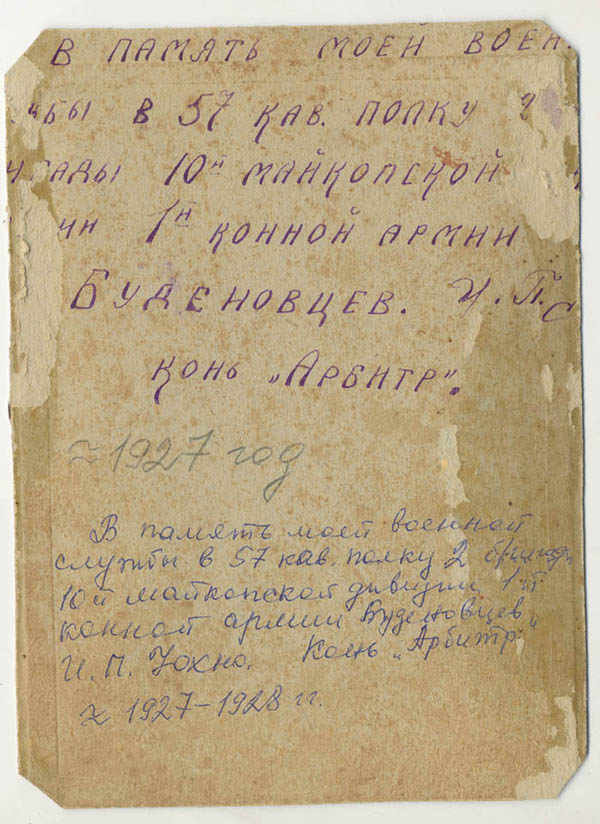 В ПАМЯТЬ МОЕЙ ВОЕН.
ЖБЫ В 57 КАВ. ПОЛКУ 2
ИГАДЫ 10Й МАЙКОПСКОЙ
ИИ 1Й КОННОЙ АРМИИ
БУДЕНОВЦЕВ. И. П.
КОНЬ „АРБИТР".
≈ 1927 год
В память моей военной
службы в 57 кав. полку 2 бригады
10й майкопской дивизии 1й
конной армии Буденовцев„
И. П. Конь „Арбитр
≈ 1927–1928 гг.